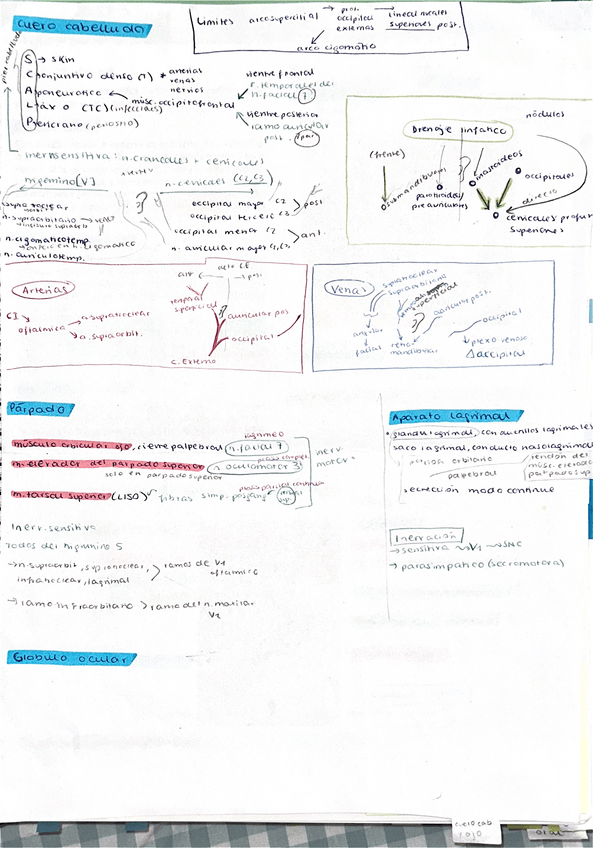 Cuero cabelludo
Límites arco superciliar → post. → líneas nucales
occipital superiores post.
externas
arco cigomático
S → Skin
C onjuntivo denso (T) * arterias
venas
nervios
A poneurótica ← músc. occipitofrontal
L axo (TC) (infecciones)
P ericraneo (periostio)
vientre frontal
r. temporales del
n. facial 7
vientre posterior
ramo auricular
post.
Inerv sensitiva: n. craneales + cervicales
n. trigémino [V]
n. cervicales (C2, C3)
supratroclear
n. supraorbitario
n. cigomaticotemp.
n. auriculotemp.
occipital mayor C2
occipital tercero C3
post
occipital menor C2
n. auricular mayor C2, C3
ant.
Drenaje linfático
nódulos
(frente)
submandibulares
parotídeos/
preauriculares
mastoideos
occipitales
directo
cervicales profun
superiores
Arterias
CI
oftálmica
a. supratroclear
a. supraorbit.
temporal
superficial
auricular pos.
occipital
C. Externo
Venas
supratroclear
supraorbitaria
superficial
auricular post.
occipital
angular
facial
retro
mandibular
plexo venoso
occipital
Párpado
músculo orbicular ojo, cierre palpebral n. facial 7
m. elevador del párpado superior n. oculomotor 3
solo en párpado superior
m. tarsal superior (LISO) fibras simp. posgang
inerv.
motora
Inerv. sensitiva
Todos del trigémino 5
→ n. supraorbit, supratroclear, > ramos de V1
infratroclear, lagrimal oftálmico
→ ramo infraorbitario > ramo del n. maxilar
V2
Aparato lagrimal
• glándula lagrimal, conductillos lagrimales
saco lagrimal, conducto nasolagrimal
orbitaria
palpebral
tendón del
músc. elevador
párpado sup.
secreción modo continue
Inervación
→ sensitiva V1 → SNC
→ parasimpático (secromotora)
Globulo ocular
cuero cab
ojo